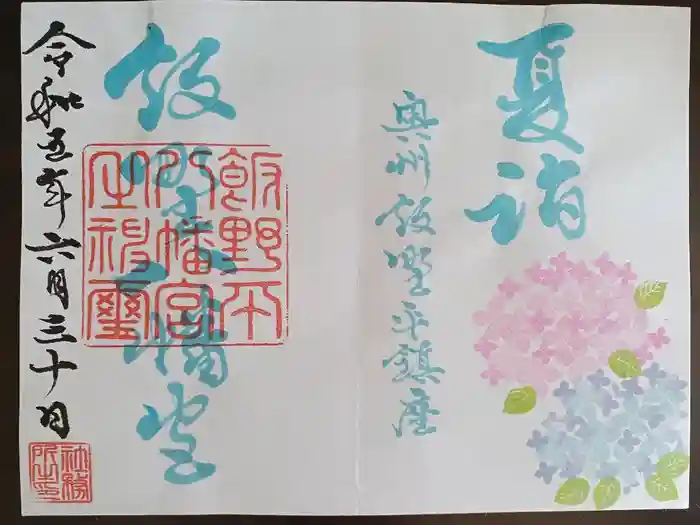 夏詣
奥州飯野平鎮座
飯野八幡宮
飯野平
八幡宮
之神璽
令和五年六月三十日
社務
所之印